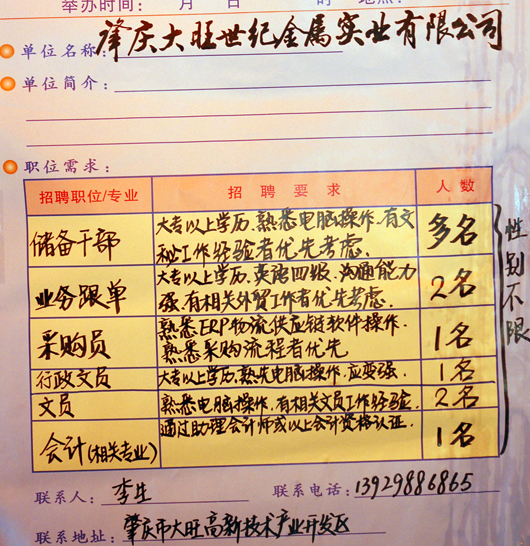 举办时间： 月 日 时 地点：
单位名称：肇庆大旺世纪金属实业有限公司
单位简介：
职位需求：
招聘职位/专业 招聘要求 人数
储备干部 大专以上学历.熟悉电脑操作.有文 多名
秘工作经验者优先考虑.
业务跟单 大专以上学历.英语四级.沟通能力 2名
强.有相关外贸工作者优先考虑.
采购员 熟悉ERP物流供应链软件操作. 1名
熟悉采购流程者优先
行政文员 大专以上学历.熟先电脑操作.应变强. 1名
文员 熟悉电脑操作.有相关文员工作经验. 2名
会计(相关专业) 通过助理会计师或以上会计资格认证. 1名
性别不限
联系人：李生 联系电话：13929886865
联系地址：肇庆市大旺高新技术产业开发区